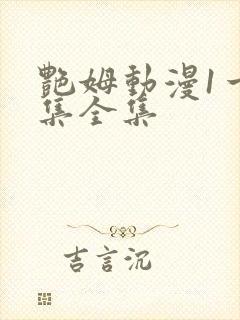 艷姆動漫1一
集全集
吉言沉